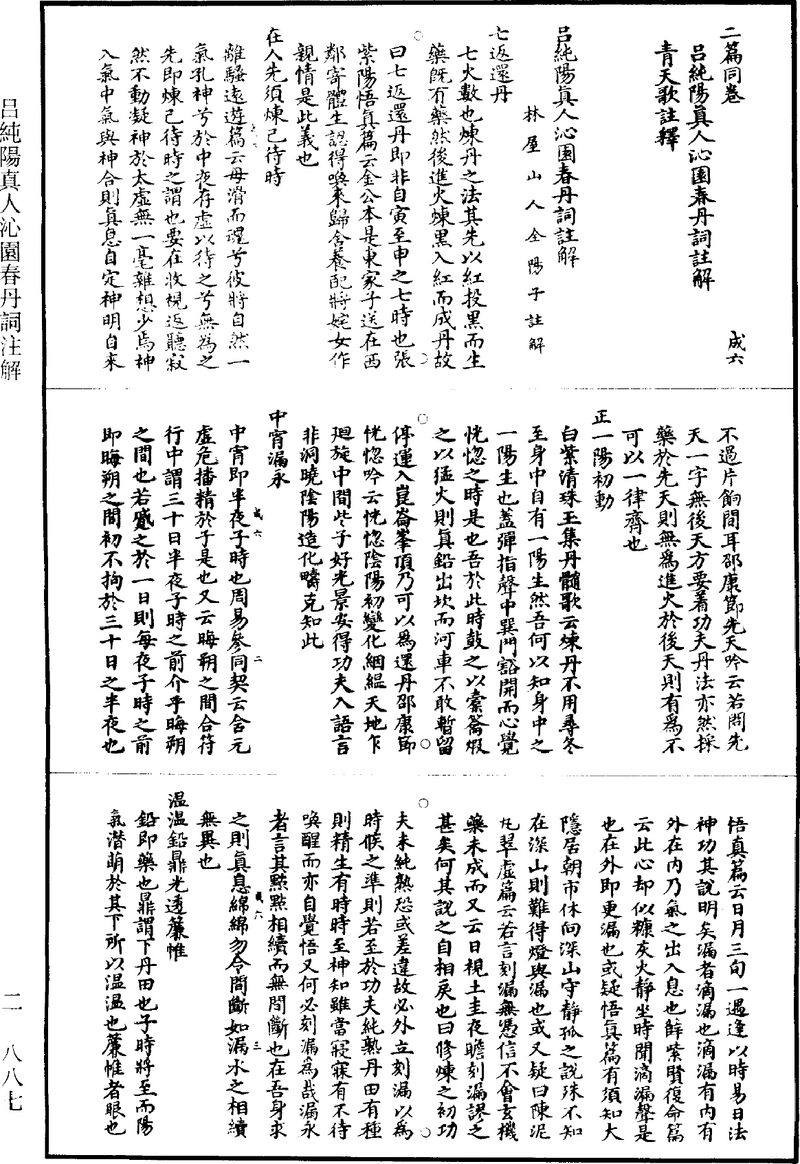 二篇同卷
呂純陽真人沁園春丹詞註解
青天歌註釋
成六
呂純陽眞人沁園春丹詞註解
林屋山人全陽子註解
七返還丹
七火數也煉丹之法其先以紅投黑而生
藥既有藥然後進火煉黑入紅而成丹故
曰七返還丹即非自寅至申之七時也張
紫陽悟眞篇云金公本是東家子送在西
鄰寄體生認得喚來歸舍養配將姹女作
親情是此義也
在人先須煉己待時
離騷遠遊篇云毋滑而魂兮彼將自然一
氣孔神兮於中夜存虛以待之兮無爲之
先即煉己待時之謂也要在收視返聽寂
然不動凝神於太虛無一毫雜想少焉神
入氣中氣與神合則眞息自定神明自來
不過片餉間耳邵康節先天吟云若問先
天一字無後天方要着功夫丹法亦然採
藥於先天則無爲進火於後天則有爲不
可以一律齊也
正一陽初動
白紫清珠玉集丹髓歌云煉丹不用尋冬
至身中自有一陽生然吾何以知身中之
一陽生也蓋彈指聲中巽門豁開而心覺
恍惚之時是也吾於此時鼓之以橐籥煆
之以猛火則眞鉛出坎而河車不敢暫留
停運入崑崙峯頂乃可以爲還丹邵康節
恍惚吟云恍惚陰陽初變化絪縕天地乍
廻旋中間些子好光景安得功夫入語言
非洞曉陰陽造化疇克知此
中宵漏永
中宵即半夜子時也周易參同契云含元
虛危播精於子是也又云晦朔之間合符
行中謂三十日半夜子時之前介乎晦朔
之間也若蹙之於一日則每夜子時之前
即晦朔之間初不拘於三十日之半夜也
成六
二
悟真篇云日月三旬一遇逢以時易日法
神功其說明矣漏者滴漏也滴漏有内有
外在内乃氣之出入息也薛紫賢復命篇
云此心却似糠灰火靜坐時聞滴漏聲是
也在外即更漏也或疑悟眞篇有須知大
隱居朝市休向深山守靜孤之說殊不知
在深山則難得燈與漏也或又疑曰陳泥
丸翠虛篇云若言刻漏無憑信不會玄機
藥未成而又云日視土圭夜瞻刻漏謬之
甚矣何其說之自相戾也曰修煉之初功
夫未純熟恐或差違故必外立刻漏以爲
時候之準則若至於功夫純熟丹田有種
則精生有時時至神知雖當寢寐有不待
喚醒而亦自覺悟又何必刻漏爲哉漏永
者言其點點相續而無間斷也在吾身求
之則眞息綿綿勿令間斷如漏水之相續
無異也
成六
三
温温鉛鼎光透簾帷
鉛即藥也鼎謂下丹田也子時將至而陽
氣潜萌於其下所以温温也簾帷者眼也
呂純陽真人沁園春丹詞注解
二一八八七